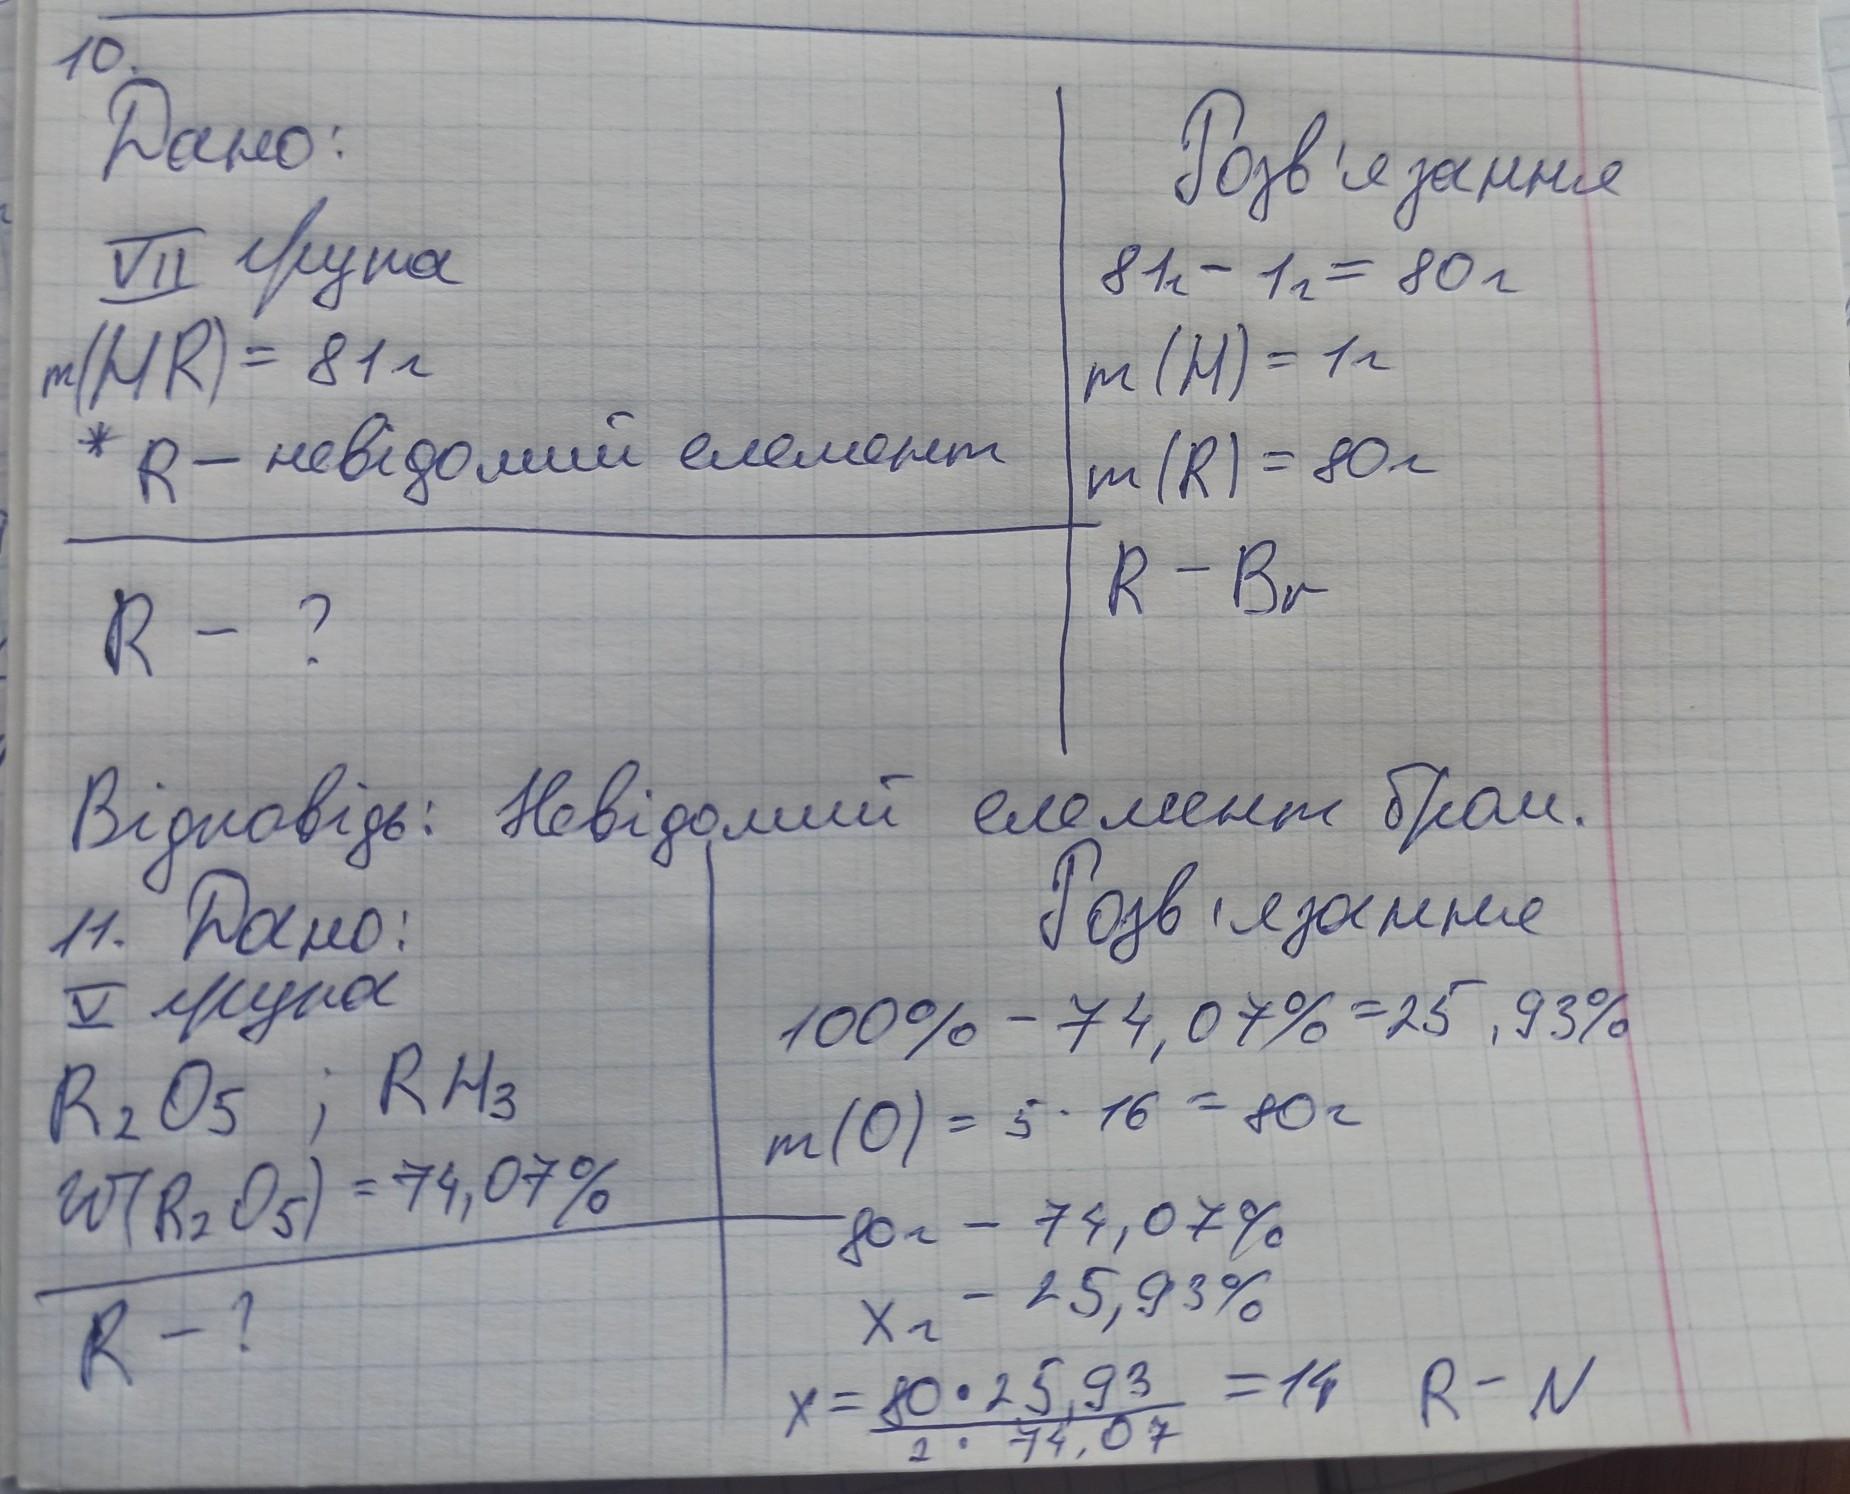 10.
Дано:
VII група
m(HR) = 81г
* R – невідомий елемент
R – ?
Розв'язання
81г – 1г = 80г
m(H) = 1г
m(R) = 80г
R – Br
Відповідь: Невідомий елемент бром.
11. Дано:
V група
R₂O₅ ; RH₃
W(R₂O₅) = 74,07%
R – ?
Розв'язання
100% – 74,07% = 25,93%
m(O) = 5 · 16 = 80г
80г – 74,07%
xг – 25,93%
x = 80 · 25,93 / 2 · 74,07 = 14 R – N